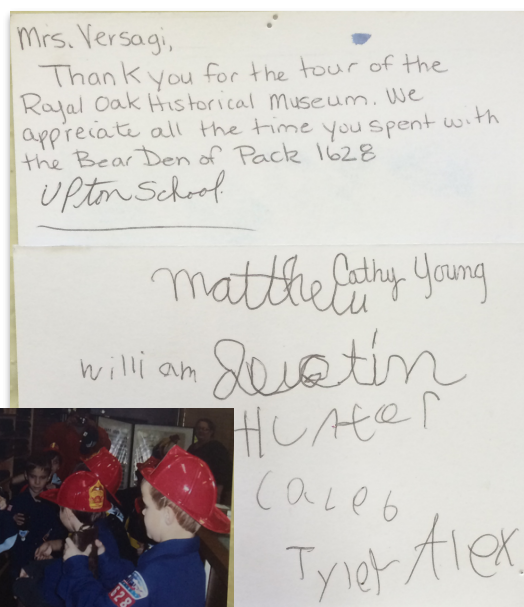 Mrs. Versagi,
Thank you for the tour of the
Royal Oak Historical Museum. We
appreciate all the time you spent with
the Bear Den of Pack 1628
Upton School.
Cathy Young
Matthew
William
Hunter
Caleb
Tyler Alex